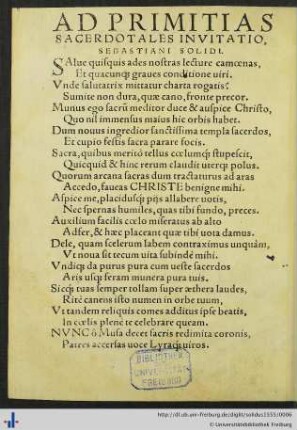 AD PRIMITIAS
SACERDOTALES INVITATIO,
SEBASTIANI SOLIDI.
SAlue quisquis ades nostras lecture camœnas,
Et quacunq; graues conditione uiri.
Vnde salutatrix mittatur charta rogatis?
Sumite non dura, quæ cano, fronte precor.
Munus ego sacrū meditor duce & auspice Christo,
Quo nil immensus maius hic orbis habet.
Dum nouus ingredior sanctissima templa sacerdos,
Et cupio festis sacra parare focis.
Sacra, quibus meritò tellus cœlumq; stupescit,
Quicquid & hinc rerum claudit uterq; polus.
Quorum arcana sacras dum tractaturus ad aras
Accedo, faueas CHRISTE benigne mihi.
Aspice me, placidusq; pijs allabere uotis,
Nec spernas humiles, quas tibi fundo, preces.
Auxilium facilis cœlo miseratus ab alto
Adfer, & hæc placeant quæ tibi uota damus.
Dele, quam scelerum labem contraximus unquàm,
Vt noua sit tecum uita subindè mihi.
Vndiq; da purus pura cum ueste sacerdos
Aris usq; feram munera pura tuis.
Sicq; tuas semper tollam super æthera laudes,
Ritè canens isto numen in orbe tuum,
Vt tandem reliquis comes additus ipse beatis,
In cœlis plenè te celebrare queam.
NVNC ô Musa decet sacris redimita coronis,
Patres accersas uoce Lyraq; uiros.
BIBLIOTHEK
UNIVERSITÄT
FREIBURG
http://dl.ub.uni-freiburg.de/diglit/solidus1555/0006
© Universitätsbibliothek Freiburg